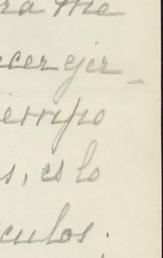 ra me
cer ejer_
iempo
s, es lo
culos.